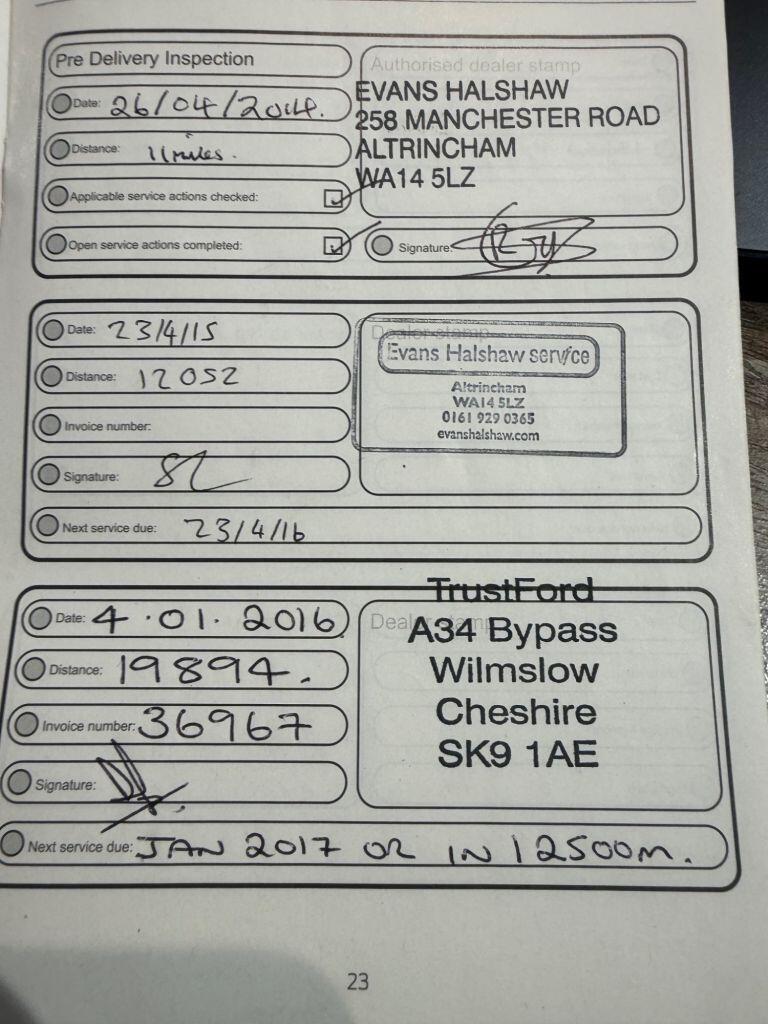 Pre Delivery Inspection
Authorised dealer stamp
Date: 26/04/2014.
EVANS HALSHAW
258 MANCHESTER ROAD
ALTRINCHAM
WA14 5LZ
Distance: 11miles.
Applicable service actions checked:
Open service actions completed:
Signature:
Date: 23/4/15
Dealer stamp
Evans Halshaw service
Altrincham
WA14 5LZ
0161 929 0365
evanshalshaw.com
Distance: 12052
Invoice number:
Signature:
Next service due: 23/4/16
Date: 4.01.2016
Dealer stamp
TrustFord
A34 Bypass
Wilmslow
Cheshire
SK9 1AE
Distance: 19894.
Invoice number: 36967
Signature:
Next service due: JAN 2017 OR IN 12500M.
23